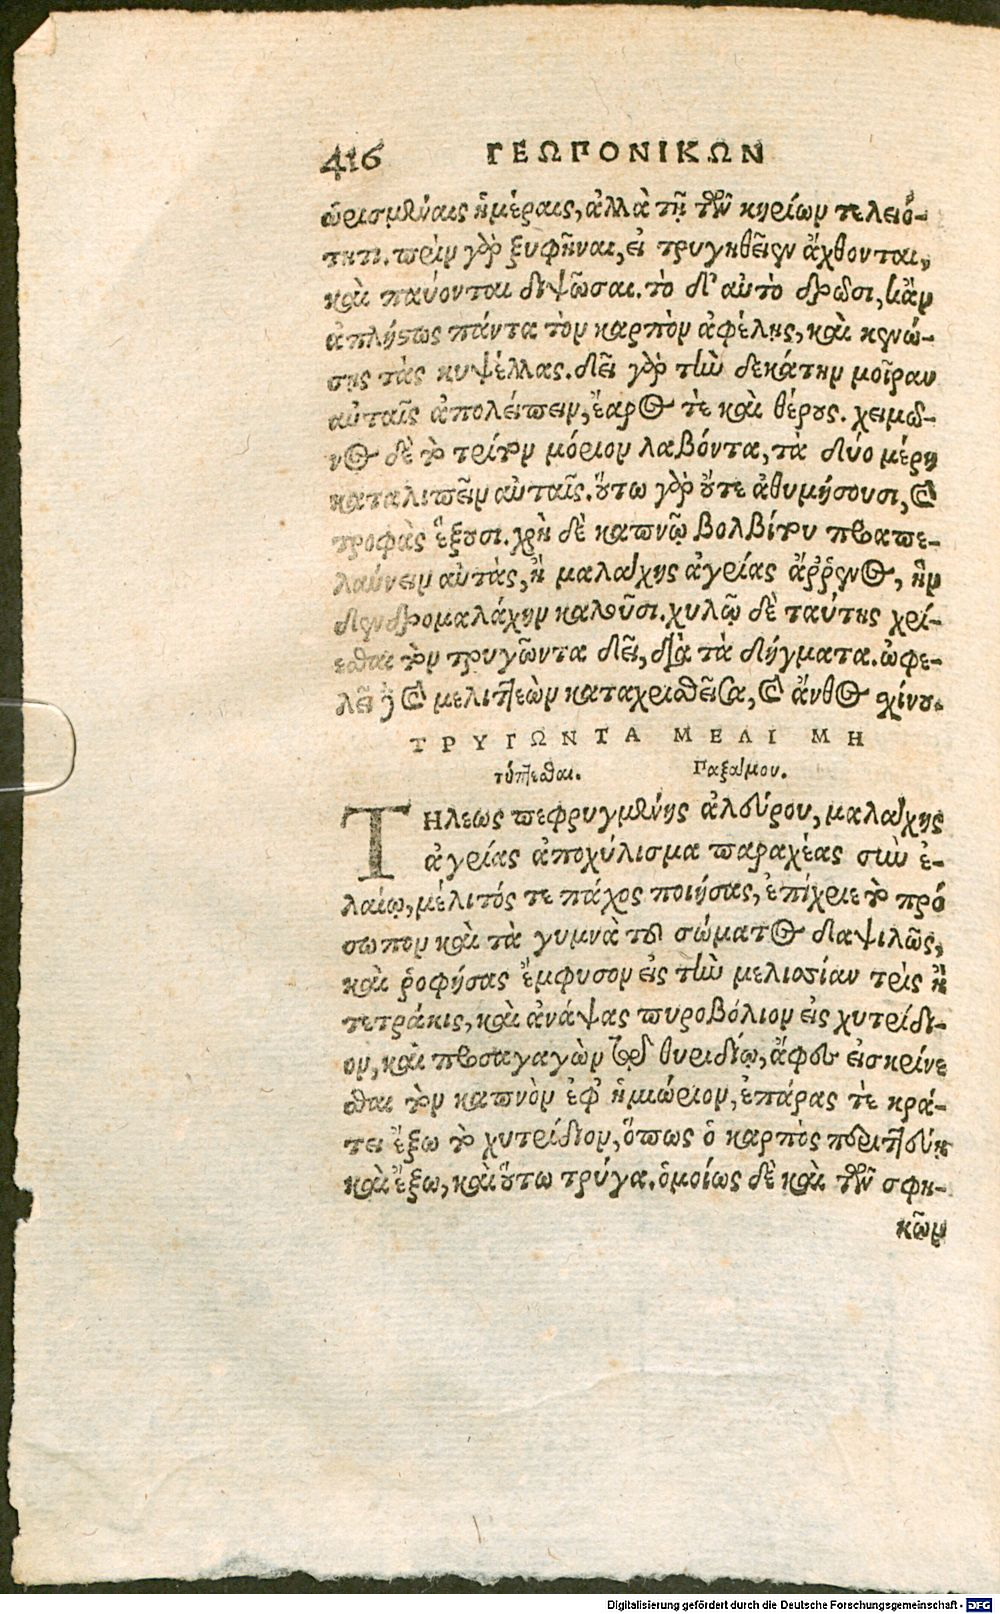 416 ΓΕΩΠΟΝΙΚΩΝ
ὡρισμέναις ἡμέραις, ἀλλὰ τῇ τῶν κηρίων τελειό-
τητι. πρὶν γὰρ ξυφῆναι, εἰ τρυγηθεῖεν ἄχθονται,
καὶ παύονται διψῶσαι. τὸ δ' αὐτὸ δρῶσι, κἂν
ἀπλήστως πάντα τὸν καρπὸν ἀφέλῃς, καὶ κενώ-
σῃς τὰς κυψέλλας. δεῖ γὰρ τὴν δεκάτην μοῖραν
αὐταῖς ἀπολείπειν, ἔαρος τὲ καὶ θέρους. χειμῶ-
νος δὲ τὸ τρίτον μόριον λαβόντα, τὰ δύο μέρη
καταλιπεῖν αὐταῖς. οὕτω γὰρ οὔτε ἀθυμήσουσι, καὶ
τροφὰς ἕξουσι. χρὴ δὲ καπνῷ βολβίτου προαπε-
λαύνειν αὐτὰς, ἢ μαλάχης ἀγρίας ἄῤῥενος, ἣν
δενδρομαλάχην καλοῦσι. χυλῷ δὲ ταύτης χρί-
εσθαι τὸν τρυγῶντα δεῖ, διὰ τὰ δήγματα. ὠφε-
λεῖ δὲ καὶ μελιττεὼν καταχρισθεῖσα, καὶ ἄνθος ἐχίνου.
ΤΡΥΓΩΝΤΑ ΜΕΛΙ ΜΗ
τύπτεσθαι. Παξάμου.
Τήλεως πεφρυγμένης ἀλεύρου, μαλάχης
ἀγρίας ἀποχύλισμα παραχέας σὺν ἐ-
λαίῳ, μέλιτός τε πάχος ποιήσας, ἐπίχριε τὸ πρό
σωπον καὶ τὰ γυμνὰ τοῦ σώματος δαψιλῶς,
καὶ ῥοφήσας ἔμφυσον εἰς τὴν μελισσίαν τρὶς ἢ
τετράκις, καὶ ἀνάψας πυροβόλιον εἰς χυτρίδι-
ον, καὶ προσαγαγὼν τῷ θυριδίῳ, ἄφες εἰσκρίνε
σθαι τὸν καπνὸν ἐφ' ἡμιώριον, ἐπάρας τὲ κρά-
τει ἔξω τὸ χυτρίδιον, ὅπως ὁ καρπὸς περιττεύῃ
καὶ ἔξω, καὶ οὕτω τρύγα. ὁμοίως δὲ καὶ τῶν σφη-
κῶν
Digitalisierung gefördert durch die Deutsche Forschungsgemeinschaft - DFG